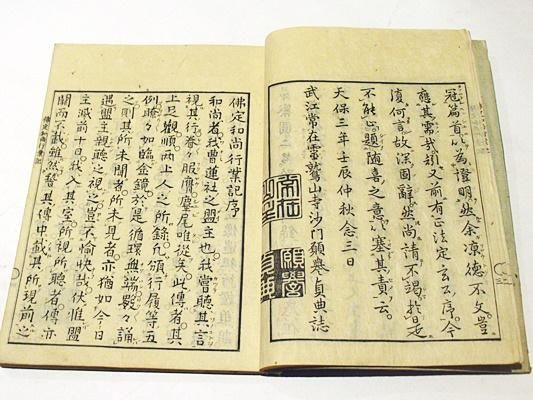 冠篇首以為證明然余凉德不文豈
應其需哉又前有正法定玄云序今
復何言故深固辭然尚請不竭於是
不能題隨喜之意以塞其責云
天保三年壬辰仲秋念三日
武江常在靈鷲山寺沙門願譽貞典誌
願譽
佛定和尚行業記序
和尚者我曾蓮社之盟主也我嘗聽其言
視其行眷々服膺麈尾唯從矣此傳者其
上足觀順兩上人之所錄允頒行履等五
例疏々如臨金鏡於是循環無端數々誦
之則其所未聞者所未見者亦猶如今日
遇盟主親聽之視之豈不愉快哉伏惟盟
主滅前十日我入其室所視所聽者傳亦
闕而不載雖然其傳中載其所現前之